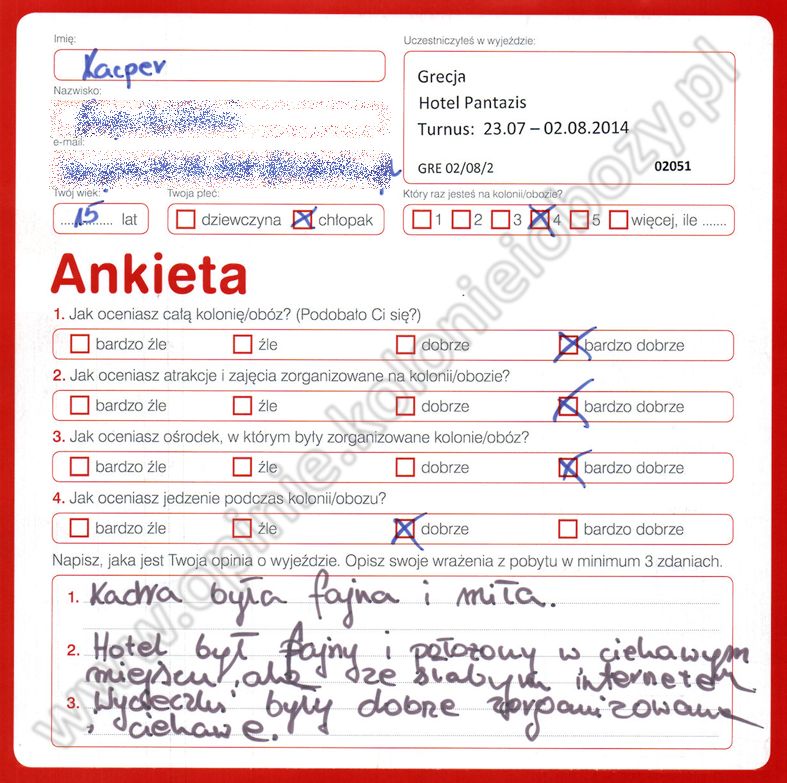 Imię:
Uczestniczyłeś w wyjeździe:
Kacper
Grecja
Nazwisko:
Hotel Pantazis
Turnus: 23.07 – 02.08.2014
e-mail:
GRE 02/08/2 02051
Twój wiek:
Twoja płeć:
Który raz jesteś na kolonii/obozie?
15 lat
dziewczyna chłopak
1 2 3 4 5 więcej, ile .......
Ankieta
1. Jak oceniasz całą kolonię/obóz? (Podobało Ci się?)
bardzo źle źle dobrze bardzo dobrze
2. Jak oceniasz atrakcje i zajęcia zorganizowane na kolonii/obozie?
bardzo źle źle dobrze bardzo dobrze
3. Jak oceniasz ośrodek, w którym były zorganizowane kolonie/obóz?
bardzo źle źle dobrze bardzo dobrze
4. Jak oceniasz jedzenie podczas kolonii/obozu?
bardzo źle źle dobrze bardzo dobrze
Napisz, jaka jest Twoja opinia o wyjeździe. Opisz swoje wrażenia z pobytu w minimum 3 zdaniach.
1. Kadra była fajna i miła.
2. Hotel był fajny i położony w ciekawym
miejscu, ale ze słabym internetem
3. Wycieczki były dobrze zorganizowane
i ciekawe.
www.opinie.kolonieiobozy.pl